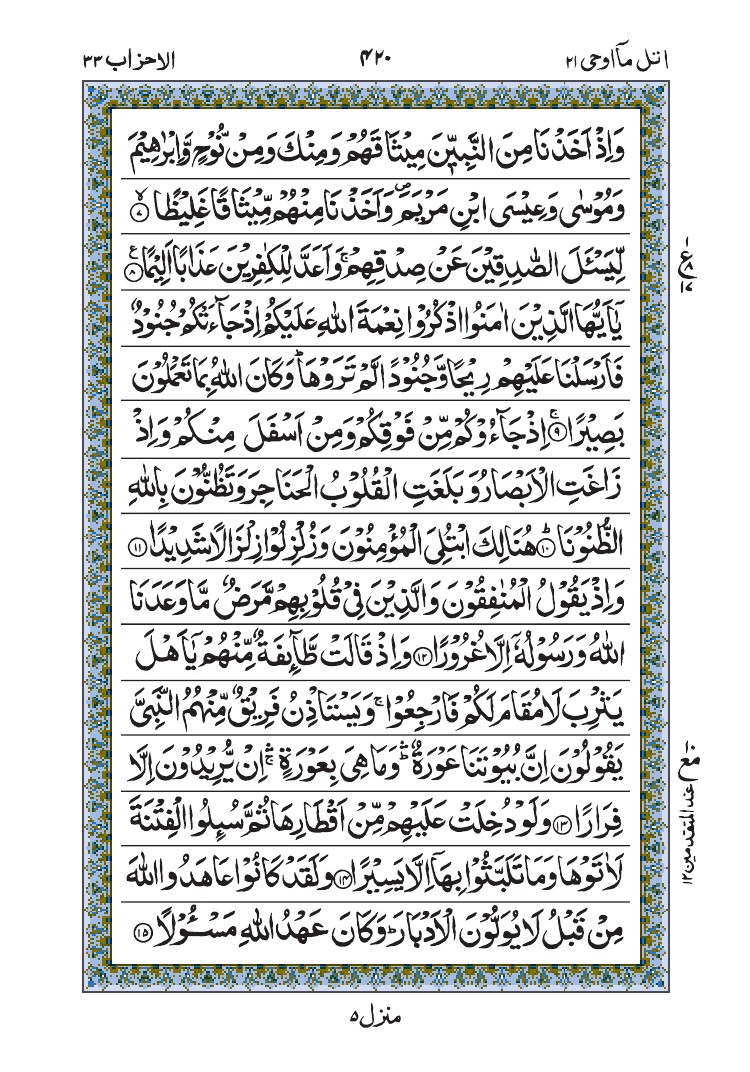 اتل مآ اوحی ۲۱ ۴۲۰ الاحزاب ۳۳
وَاِذْ اَخَذْنَا مِنَ النَّبِيّٖنَ مِيْثَاقَهُمْ وَمِنْكَ وَمِنْ نُّوْحٍ وَّاِبْرٰهِيْمَ
وَمُوْسٰى وَعِيْسَى ابْنِ مَرْيَمَ ۖ وَاَخَذْنَا مِنْهُمْ مِّيْثَاقًا غَلِيْظًا ۙ﴿۷﴾
لِّيَسْـَٔلَ الصّٰدِقِيْنَ عَنْ صِدْقِهِمْ ۚ وَاَعَدَّ لِلْكٰفِرِيْنَ عَذَابًا اَلِيْمًا ﴿۸﴾ ع
يٰۤاَيُّهَا الَّذِيْنَ اٰمَنُوا اذْكُرُوْا نِعْمَةَ اللّٰهِ عَلَيْكُمْ اِذْ جَآءَتْكُمْ جُنُوْدٌ
فَاَرْسَلْنَا عَلَيْهِمْ رِيْحًا وَّجُنُوْدًا لَّمْ تَرَوْهَا ؕ وَكَانَ اللّٰهُ بِمَا تَعْمَلُوْنَ
بَصِيْرًا ۚ﴿۹﴾ اِذْ جَآءُوْكُمْ مِّنْ فَوْقِكُمْ وَمِنْ اَسْفَلَ مِنْكُمْ وَاِذْ
زَاغَتِ الْاَبْصَارُ وَبَلَغَتِ الْقُلُوْبُ الْحَنَاجِرَ وَتَظُنُّوْنَ بِاللّٰهِ
الظُّنُوْنَا ؕ﴿۱۰﴾ هُنَالِكَ ابْتُلِيَ الْمُؤْمِنُوْنَ وَزُلْزِلُوْا زِلْزَالًا شَدِيْدًا ﴿۱۱﴾
وَاِذْ يَقُوْلُ الْمُنٰفِقُوْنَ وَالَّذِيْنَ فِيْ قُلُوْبِهِمْ مَّرَضٌ مَّا وَعَدَنَا
اللّٰهُ وَرَسُوْلُهٗۤ اِلَّا غُرُوْرًا ﴿۱۲﴾ وَاِذْ قَالَتْ طَّآئِفَةٌ مِّنْهُمْ يٰۤاَهْلَ
يَثْرِبَ لَا مُقَامَ لَكُمْ فَارْجِعُوْا ۚ وَيَسْتَاْذِنُ فَرِيْقٌ مِّنْهُمُ النَّبِيَّ
يَقُوْلُوْنَ اِنَّ بُيُوْتَنَا عَوْرَةٌ ؕۛ وَمَا هِيَ بِعَوْرَةٍ ۚۛ اِنْ يُّرِيْدُوْنَ اِلَّا
فِرَارًا ﴿۱۳﴾ وَلَوْ دُخِلَتْ عَلَيْهِمْ مِّنْ اَقْطَارِهَا ثُمَّ سُئِلُوا الْفِتْنَةَ
لَاٰتَوْهَا وَمَا تَلَبَّثُوْا بِهَاۤ اِلَّا يَسِيْرًا ﴿۱۴﴾ وَلَقَدْ كَانُوْا عَاهَدُوا اللّٰهَ
مِنْ قَبْلُ لَا يُوَلُّوْنَ الْاَدْبَارَ ؕ وَكَانَ عَهْدُ اللّٰهِ مَسْـُٔوْلًا ﴿۱۵﴾
منزل ۵
مع
عند المتقدمین ۱۲